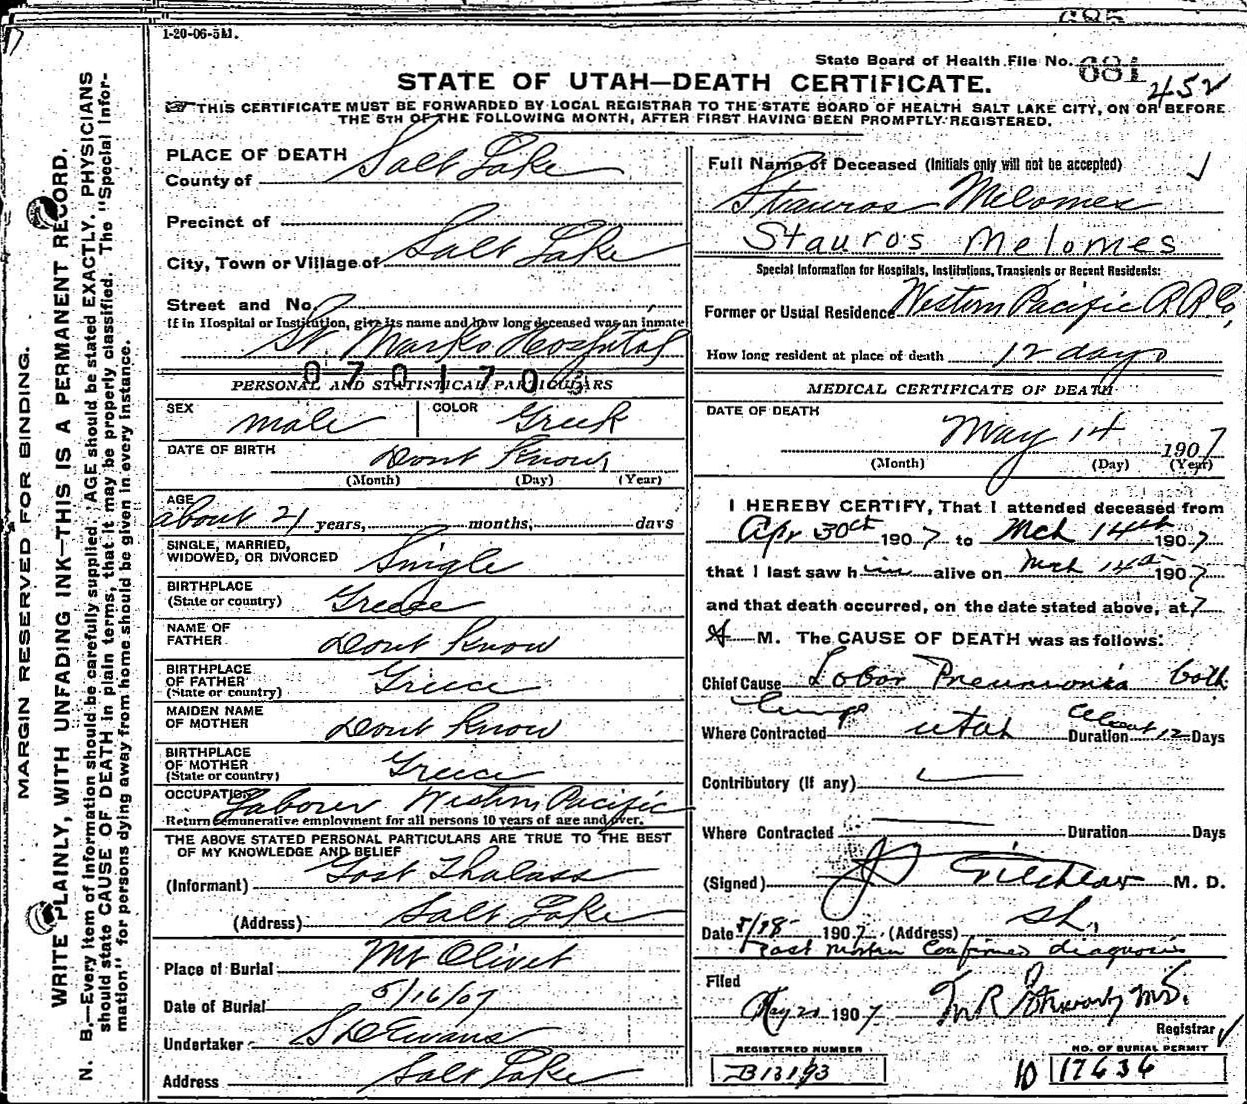 1-20-06-5M.
State Board of Health File No. 681
452
STATE OF UTAH—DEATH CERTIFICATE.
THIS CERTIFICATE MUST BE FORWARDED BY LOCAL REGISTRAR TO THE STATE BOARD OF HEALTH SALT LAKE CITY, ON OR BEFORE
THE 5TH OF THE FOLLOWING MONTH, AFTER FIRST HAVING BEEN PROMPTLY REGISTERED.
MARGIN RESERVED FOR BINDING.
WRITE PLAINLY, WITH UNFADING INK—THIS IS A PERMANENT RECORD.
N. B.—Every item of information should be carefully supplied. AGE should be stated EXACTLY. PHYSICIANS
should state CAUSE OF DEATH in plain terms, that it may be properly classified. The "Special Infor-
mation" for persons dying away from home should be given in every instance.
PLACE OF DEATH
County of Salt Lake
Precinct of
City, Town or Village of Salt Lake
Street and No.
If in Hospital or Institution, give its name and how long deceased was an inmate
St Marks Hospital
070170
PERSONAL AND STATISTICAL PARTICULARS
SEX male COLOR Greek
DATE OF BIRTH Dont Know
(Month) (Day) (Year)
AGE
about 21 years, months, days
SINGLE, MARRIED,
WIDOWED, OR DIVORCED Single
BIRTHPLACE
(State or country) Greece
NAME OF
FATHER Dont Know
BIRTHPLACE
OF FATHER
(State or country) Greece
MAIDEN NAME
OF MOTHER Dont Know
BIRTHPLACE
OF MOTHER
(State or country) Greece
OCCUPATION Laborer Western Pacific
Return remunerative employment for all persons 10 years of age and over.
THE ABOVE STATED PERSONAL PARTICULARS ARE TRUE TO THE BEST
OF MY KNOWLEDGE AND BELIEF
(Informant) Gost Thalass
(Address) Salt Lake
Place of Burial Mt Olivet
Date of Burial 5/16/07
Undertaker S D Evans
Address Salt Lake
Full Name of Deceased (Initials only will not be accepted)
Stauros Melomes
Stauros Melomes
Special Information for Hospitals, Institutions, Transients or Recent Residents:
Former or Usual Residence Western Pacific R R Co,
How long resident at place of death 12 days
MEDICAL CERTIFICATE OF DEATH
DATE OF DEATH
May 14 1907
(Month) (Day) (Year)
I HEREBY CERTIFY, That I attended deceased from
Apr 30th 1907 to Mch 14th 1907
that I last saw him alive on Mch 14th 1907
and that death occurred, on the date stated above, at 7
A M. The CAUSE OF DEATH was as follows:
Chief Cause Lobar Pneumonia both
lungs
Where Contracted Utah Duration About 12 Days
Contributory (If any)
Where Contracted Duration Days
(Signed) M. D.
Date 5/18 1907 (Address) SL,
Post mortem Confirmed diagnosis
Filed
May 20 1907 M.D.
Registrar
REGISTERED NUMBER
B13193
NO. OF BURIAL PERMIT
D 17636